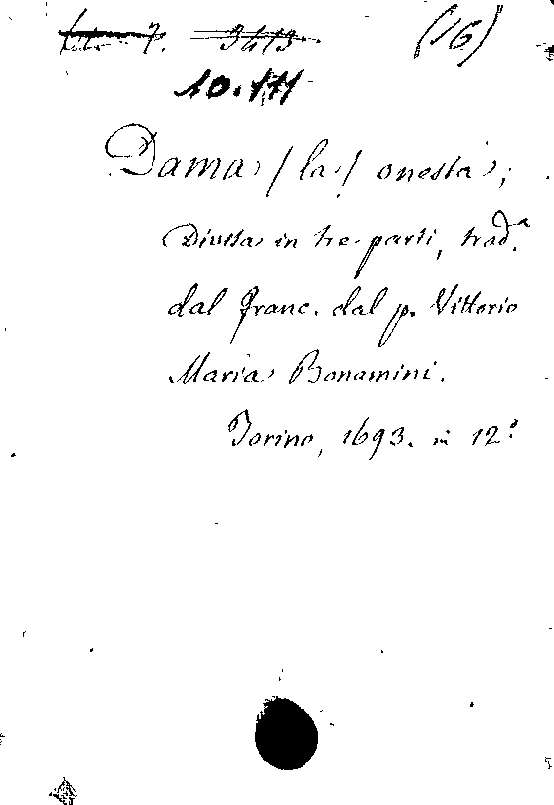 7. 3413 (16)
10.111
Dama (la) onesta,
Divisa in tre parti, trad.a
dal franc. dal p. Vittorio
Maria Bonamini.
Torino, 1693. in 12.o